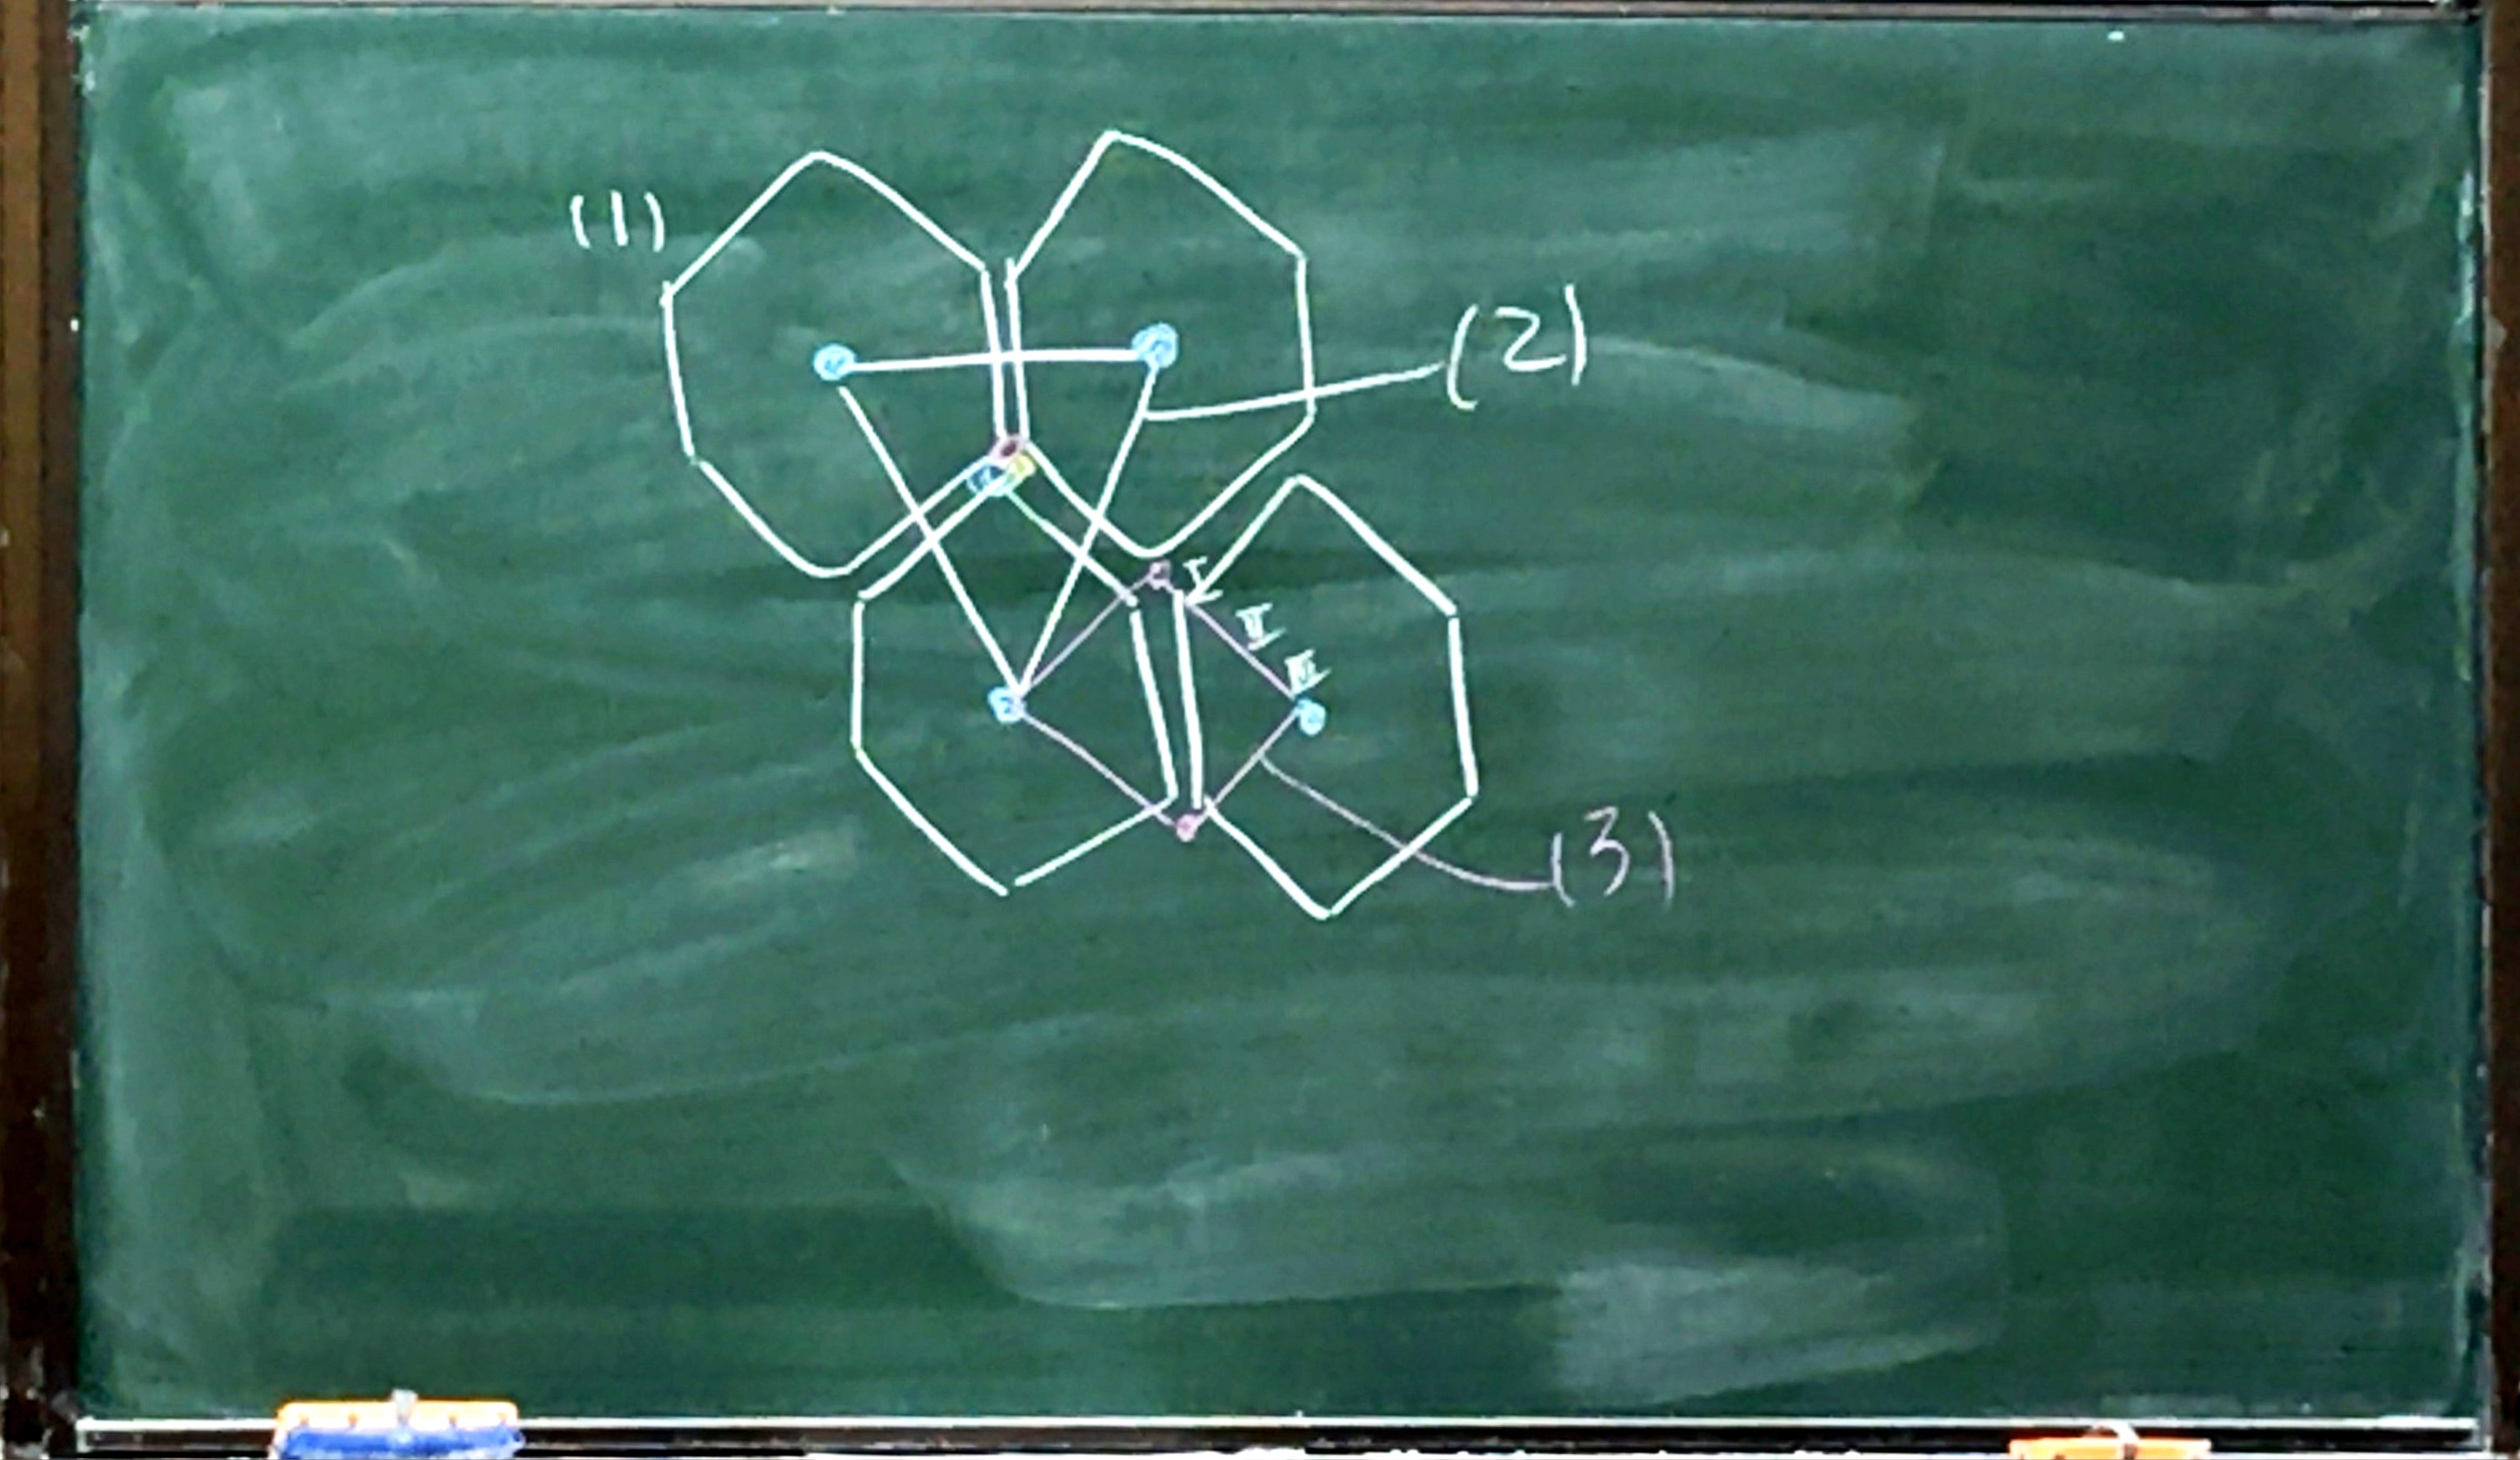 (1)
(2)
I
II
III
(3)